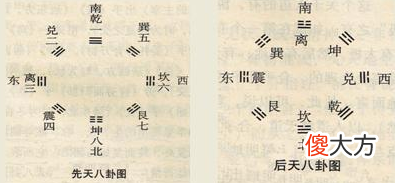 南乾一
兑二
巽五
东
离三
坎六
西
震四
艮七
坤八北
先天八卦图
南
离
巽
坤
东
震
兑
西
艮
乾
坎
傻大方
后天八卦图